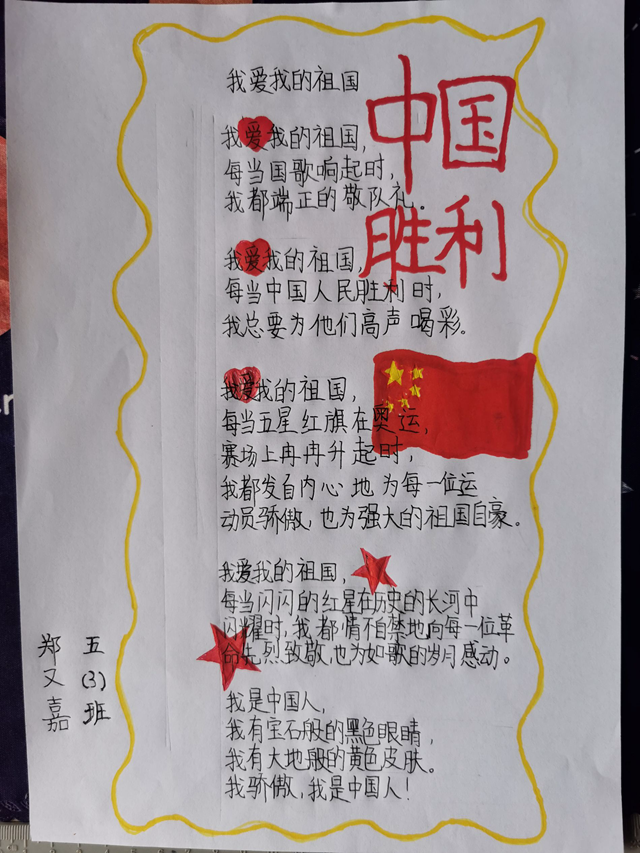 我爱我的祖国
中国
胜利
我爱我的祖国，
每当国歌响起时，
我都端正的敬队礼。
我爱我的祖国，
每当中国人民胜利时，
我总要为他们高声喝彩。
我爱我的祖国，
每当五星红旗在奥运，
赛场上冉冉升起时，
我都发自内心地为每一位运
动员骄傲，也为强大的祖国自豪。
我爱我的祖国，
每当闪闪的红星在历史的长河中
闪耀时，我都情不自禁地向每一位革
命先烈致敬，也为如歌的岁月感动。
我是中国人，
我有宝石般的黑色眼睛，
我有大地般的黄色皮肤。
我骄傲，我是中国人！
五(3)班
郑又嘉